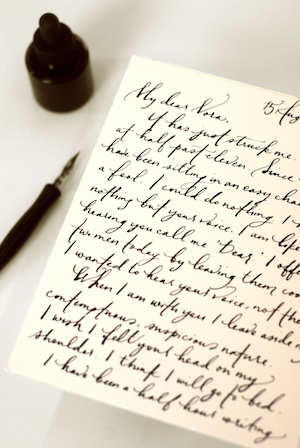 My dear Nora,
15 Aug
It has just struck me.
at half past eleven. Since
have been sitting in an easy chai
a fool. I could do nothing. I
nothing but your voice. I am like
hearing you call me 'Dear.' I off
two men today by leaving them co
I wanted to hear your voice, not the
When I am with you I leave aside m
contemptuous, suspicious nature.
I wish I felt your head on my
shoulder. I think I will go to bed.
I have been a half-hour writing